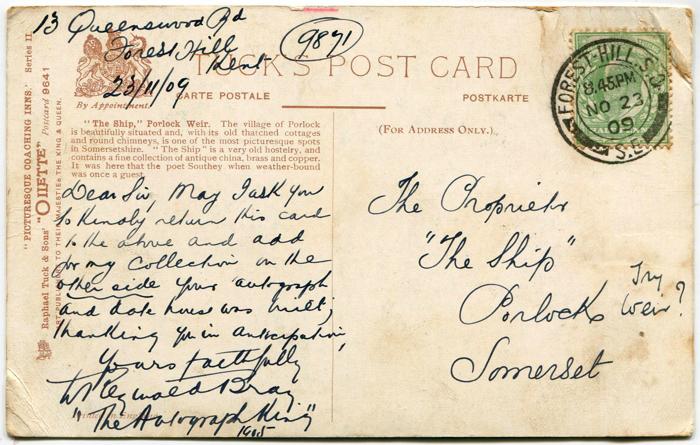 13 Queenswood Rd
Forest Hill
Kent
23/11/09
9871
TUCK'S POST CARD
By Appointment.
CARTE POSTALE
POSTKARTE
(FOR ADDRESS ONLY.)
"PICTURESQUE COACHING INNS." Series II
Raphael Tuck & Sons' "OILETTE" Postcard 9641
ART PUBLISHERS TO THEIR MAJESTIES THE KING & QUEEN.
"The Ship," Porlock Weir. The village of Porlock
is beautifully situated and, with its old thatched cottages
and round chimneys, is one of the most picturesque spots
in Somersetshire. "The Ship" is a very old hostelry, and
contains a fine collection of antique china, brass and copper.
It was here that the poet Southey when weather-bound
was once a guest.
Dear Sir, May I ask you
to kindly return this card
to the above and add
for my collection on the
other side your autograph
and date house was built,
thanking you in anticipation,
Yours faithfully
W Reginald Bray
"The Autograph King"
1905
FOREST-HILL.S.O
8.45PM
NO 23
09
S.E
The Proprietor
"The Ship"
Porlock
Try
Weir?
Somerset